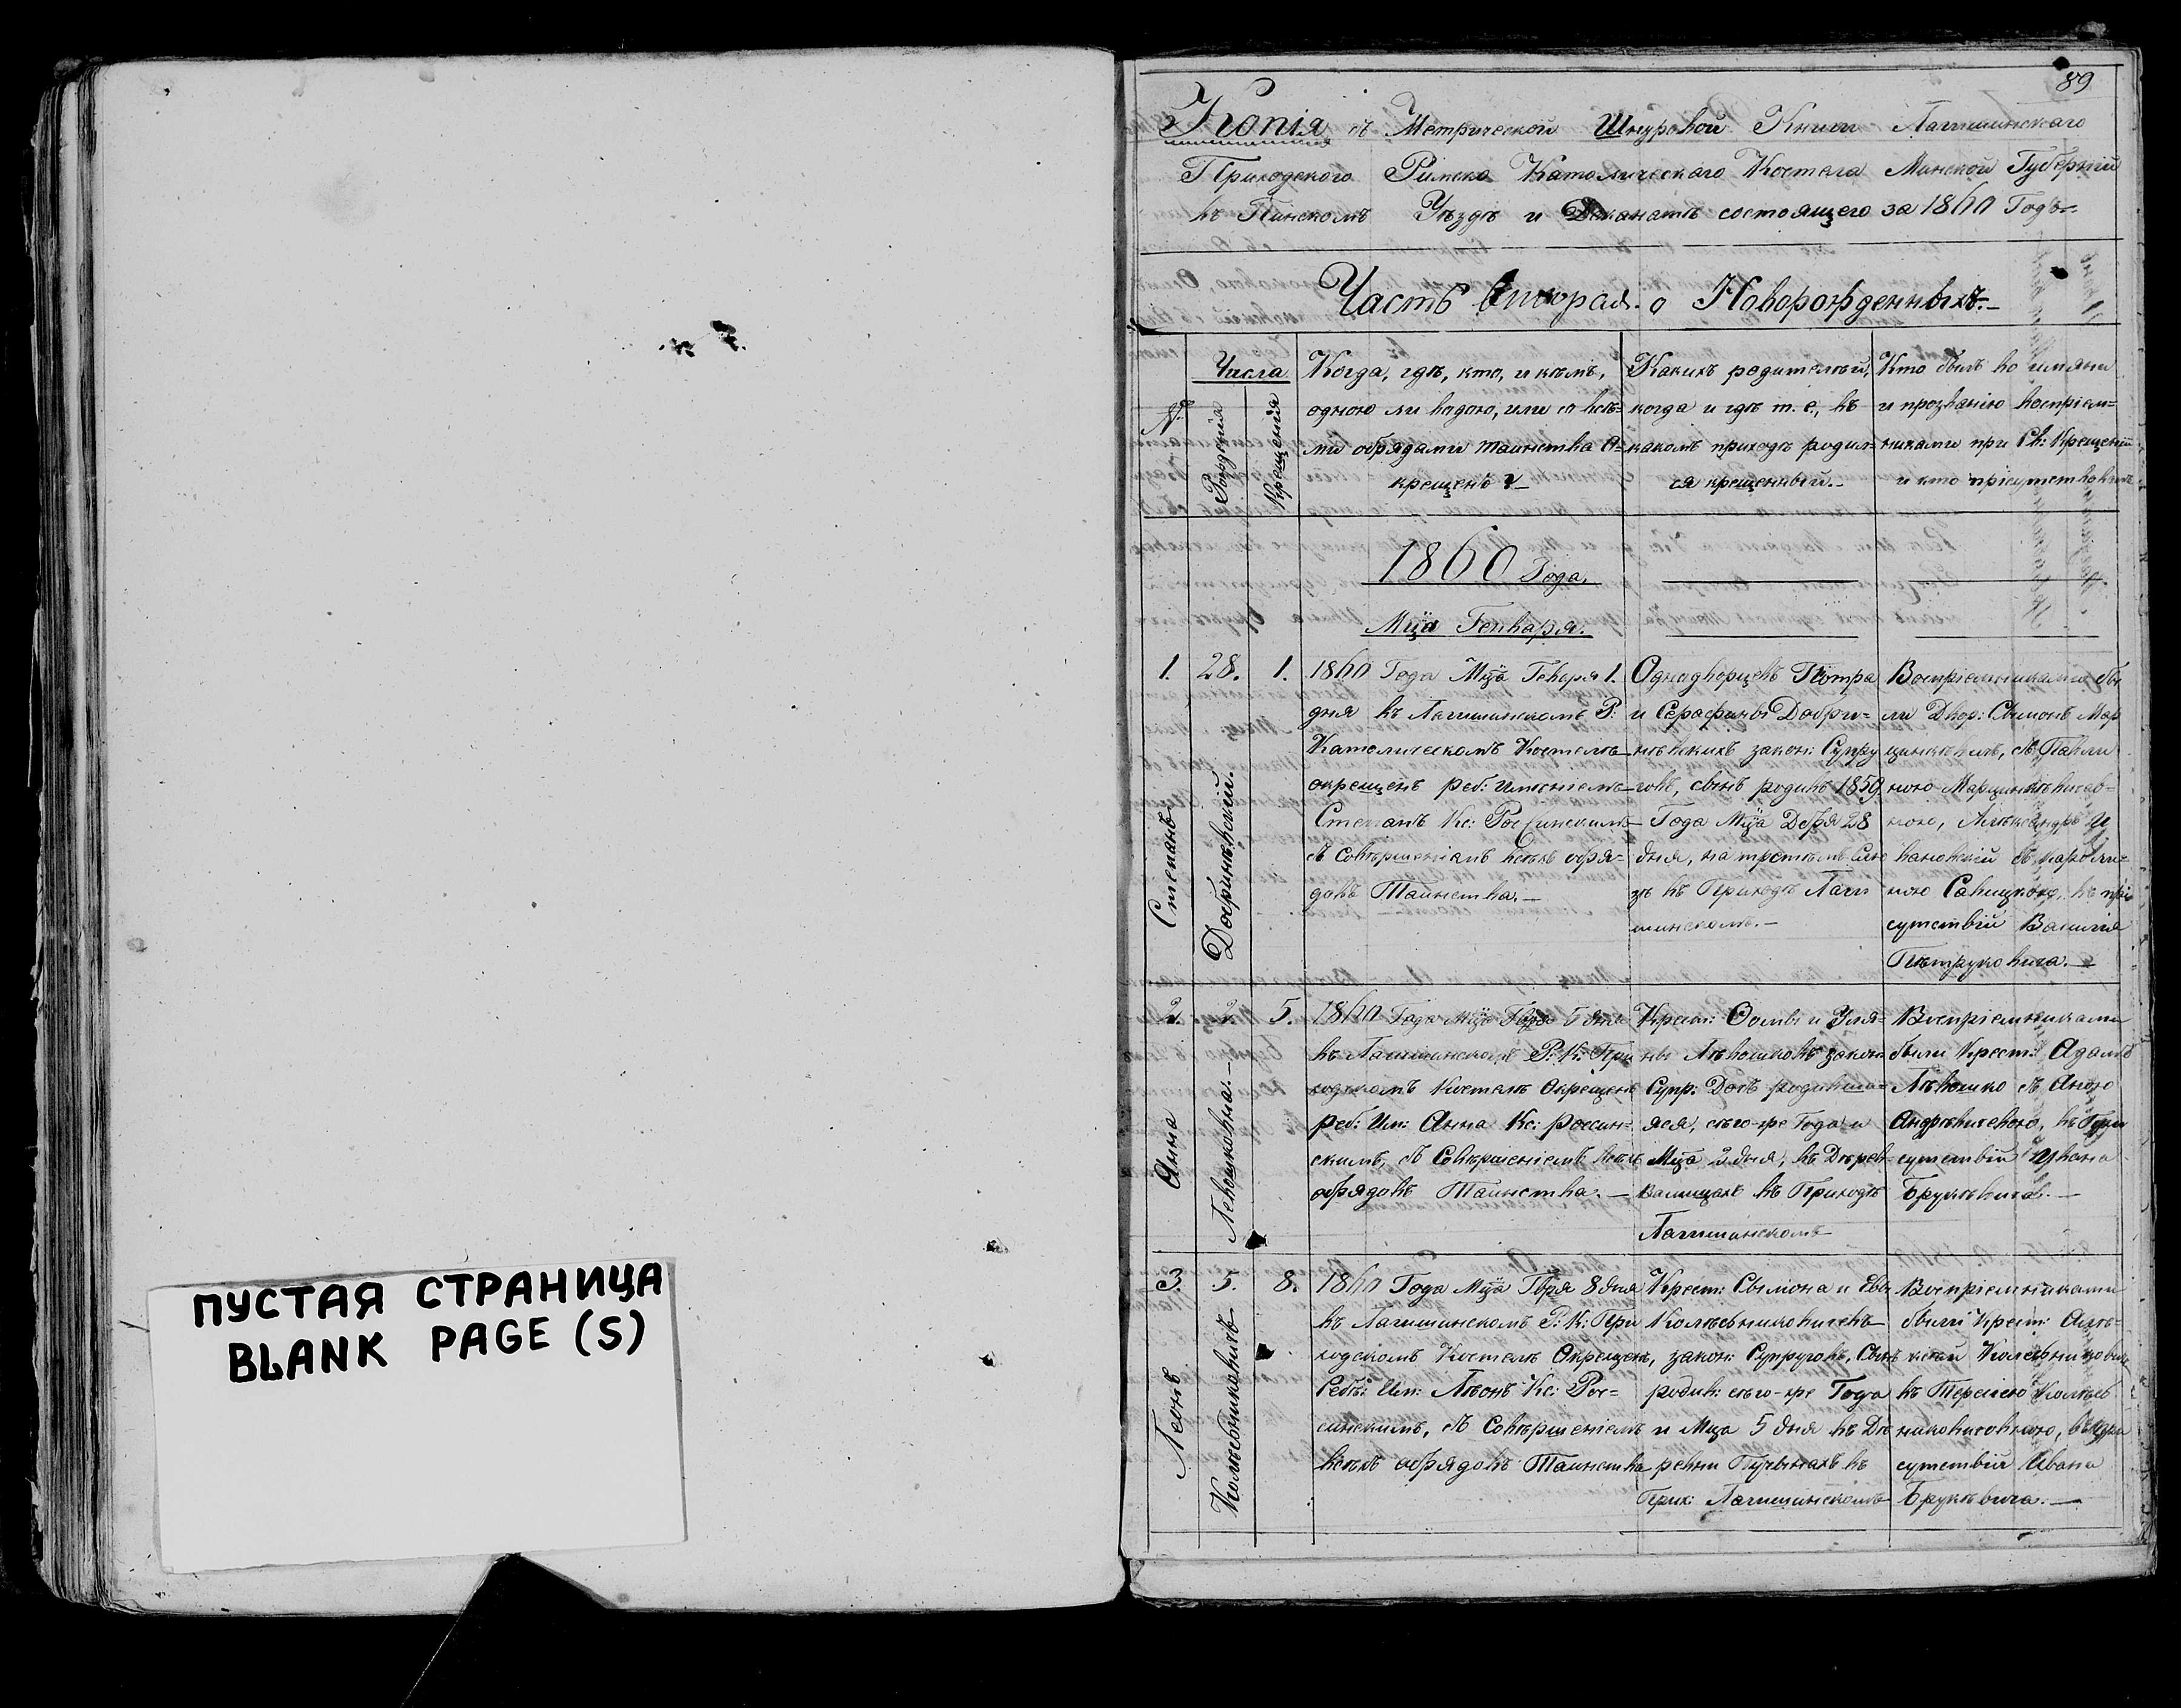 ПУСТАЯ СТРАНИЦА
BLANK PAGE (S)
89
Копія съ Метрической Шнуровой Книги Лагишинскаго
Приходского Римско Католическаго Костела Минской Губерніи
въ Пинскомъ Уѣздѣ и Деканатѣ состоящего за 1860 Годъ
Часть вторая о Новорожденныхъ.
№
Числа
Рожденія
Крещенія
Когда, гдѣ, кто, и кѣмъ,
одною ли водою, или со всѣ-
ми обрядами таинства о-
крещенъ?
Какихъ родителѣй,
когда и гдѣ т. е., въ
какомъ приходѣ родил-
ся крещенный.
Кто былъ по имяни
и прозванію воспріем-
никами при Св: Крещеніи
и кто прісутствовалъ
1860 Года.
Мца Генваря.
1. 28. 1.
Степанъ
Добриневскій.
1860 Года Мца Геваря 1.
дня въ Лагишинскомъ Р:
Католическомъ Костелѣ
окрещенъ реб: имѣніемъ
Степанъ Кс: Россинскимъ
съ совѣршеніемъ всѣхъ обря-
довъ Таинства.
Однодворцевъ Пѣтра
и Серафины Добри-
нѣвскихъ закон: Супру
говъ, сынъ родивъ 1859
Года Мца Дебря 28
дня, на третьемъ
въ Приходѣ Лаги
шинскомъ.
Воспріемниками бы
ли Двор: Сымонъ Мар
цинкѣвичъ, съ Павли
ною Марцинкѣвичов-
ною, Алѣксандръ И
вановскій съ Каролі-
ною Савицкою, въ прі
сутствіи Василія
Пѣтруковича.
2. 2. 5.
Анна
Левошковна.
1860 Года Мца Гвря 5 дня
въ Лагишинскомъ Р: К: При
ходскомъ Костелѣ Окрещена
реб: Им: Анна Кс: Россин-
скимъ, съ Совѣршеніемъ всѣхъ
обрядовъ Таинства.
Крест: Ѳомы и Улья-
ны Лѣвошковъ закон
Супр: Дочь родивша-
яся, сего-же Года и
Мца 2 дня, въ Дерев
Валищахъ въ Приходѣ
Лагишинскомъ
Воспріемниками
были Крест: Адамъ
Лѣвошко съ Аною
Андрѣвичевою, въ При
сутствіи Ивана
Брукѣвича.
3. 5. 8.
Леонъ
Колѣсниковичъ
1860 Года Мца Гвря 8 дня
въ Лагишинскомъ Р: К: При
ходскомъ Костелѣ Окрещенъ,
Реб: Им: Лѣонъ Кс: Рос-
синскимъ, съ Совѣршеніемъ
всѣхъ обрядовъ Таинства
Крест: Сымона и Евы
Колѣсниковичевъ
закон: Супруговъ, Сынъ
родив: сего-же Года
и Мца 5 дня въ Де
ревни Пучынахъ въ
Прих: Лагишинскомъ
Воспріемниками
были Крест: Алѣ-
ксѣй Колѣсниковичъ
съ Терѣсею Колѣс
никовичовною, въ при
сутствіи Ивана
Брукѣвича.